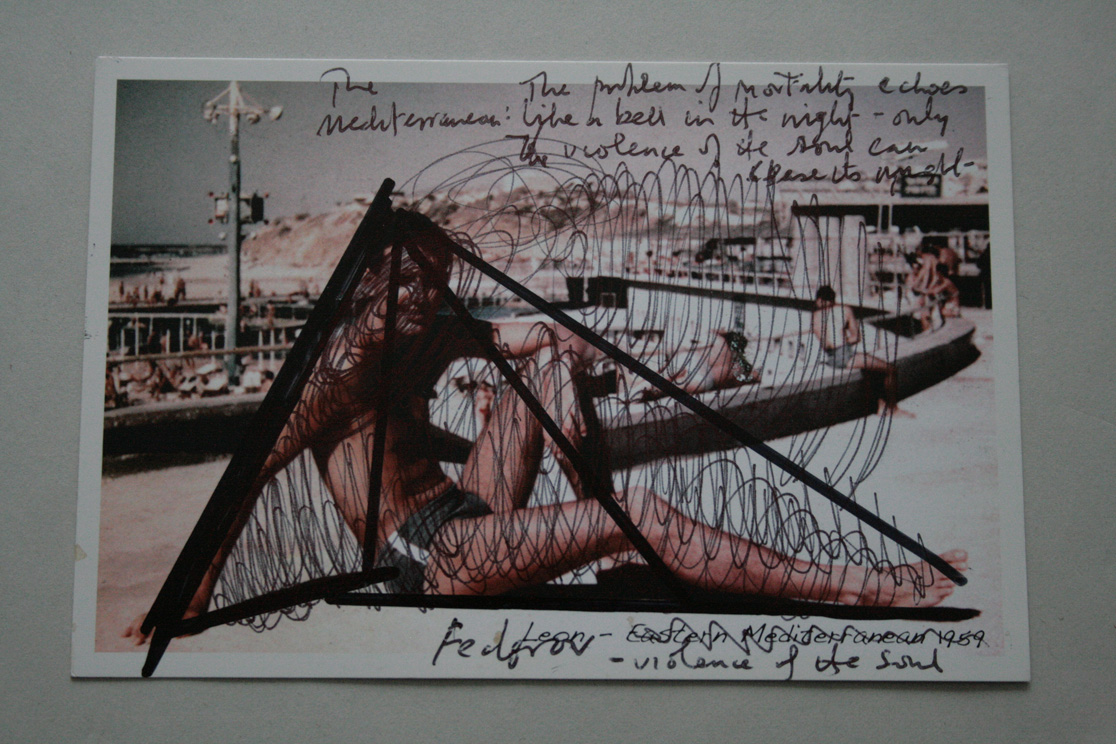 The
Mediterranean:
The problem of mortality echoes
like a bell in the night - only
The violence of the soul can
its
Fedorov
Leon - Eastern Mediterranean 1959
- violence of the soul